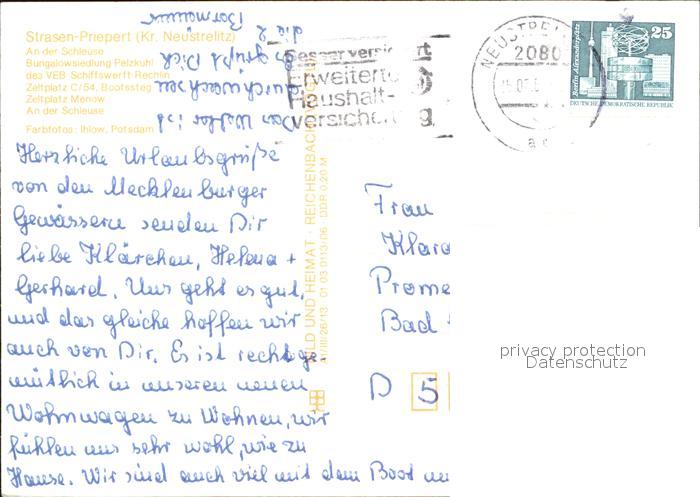 Strasen-Priepert (Kr. Neustrelitz)
An der Schleuse
Bungalowsiedlung Pelzkuhl
des VEB Schiffswerft Rechlin
Zeltplatz C/54, Bootssteg
Zeltplatz Menow
An der Schleuse
Farbfotos: Ihlow, Potsdam
Besser versichert
Erweiterte
Haushalt-
versicherung
NEUSTREL
2080
Berlin, Alexanderplatz
25
DEUTSCHE DEMOKRATISCHE REPUBLIK
Herzliche Urlaubsgrüße
von den Mecklenburger
Gewässern senden Dir
liebe Klärchen, Helena +
Gerhard. Uns geht es gut,
und das gleiche hoffen wir
auch von Dir. Es ist recht ge-
mütlich in unseren neuen
Wohnwagen zu Wohnen, wir
fühlen uns sehr wohl, wie zu
Hause. Wir sind auch viel mit dem Boot un
es grüßt Dich
die 2
BILD UND HEIMAT · REICHENBACH
01 03 0113/06 DDR 0,20 M
Frau
Klara
Prome
Bad
D 5
privacy protection
Datenschutz